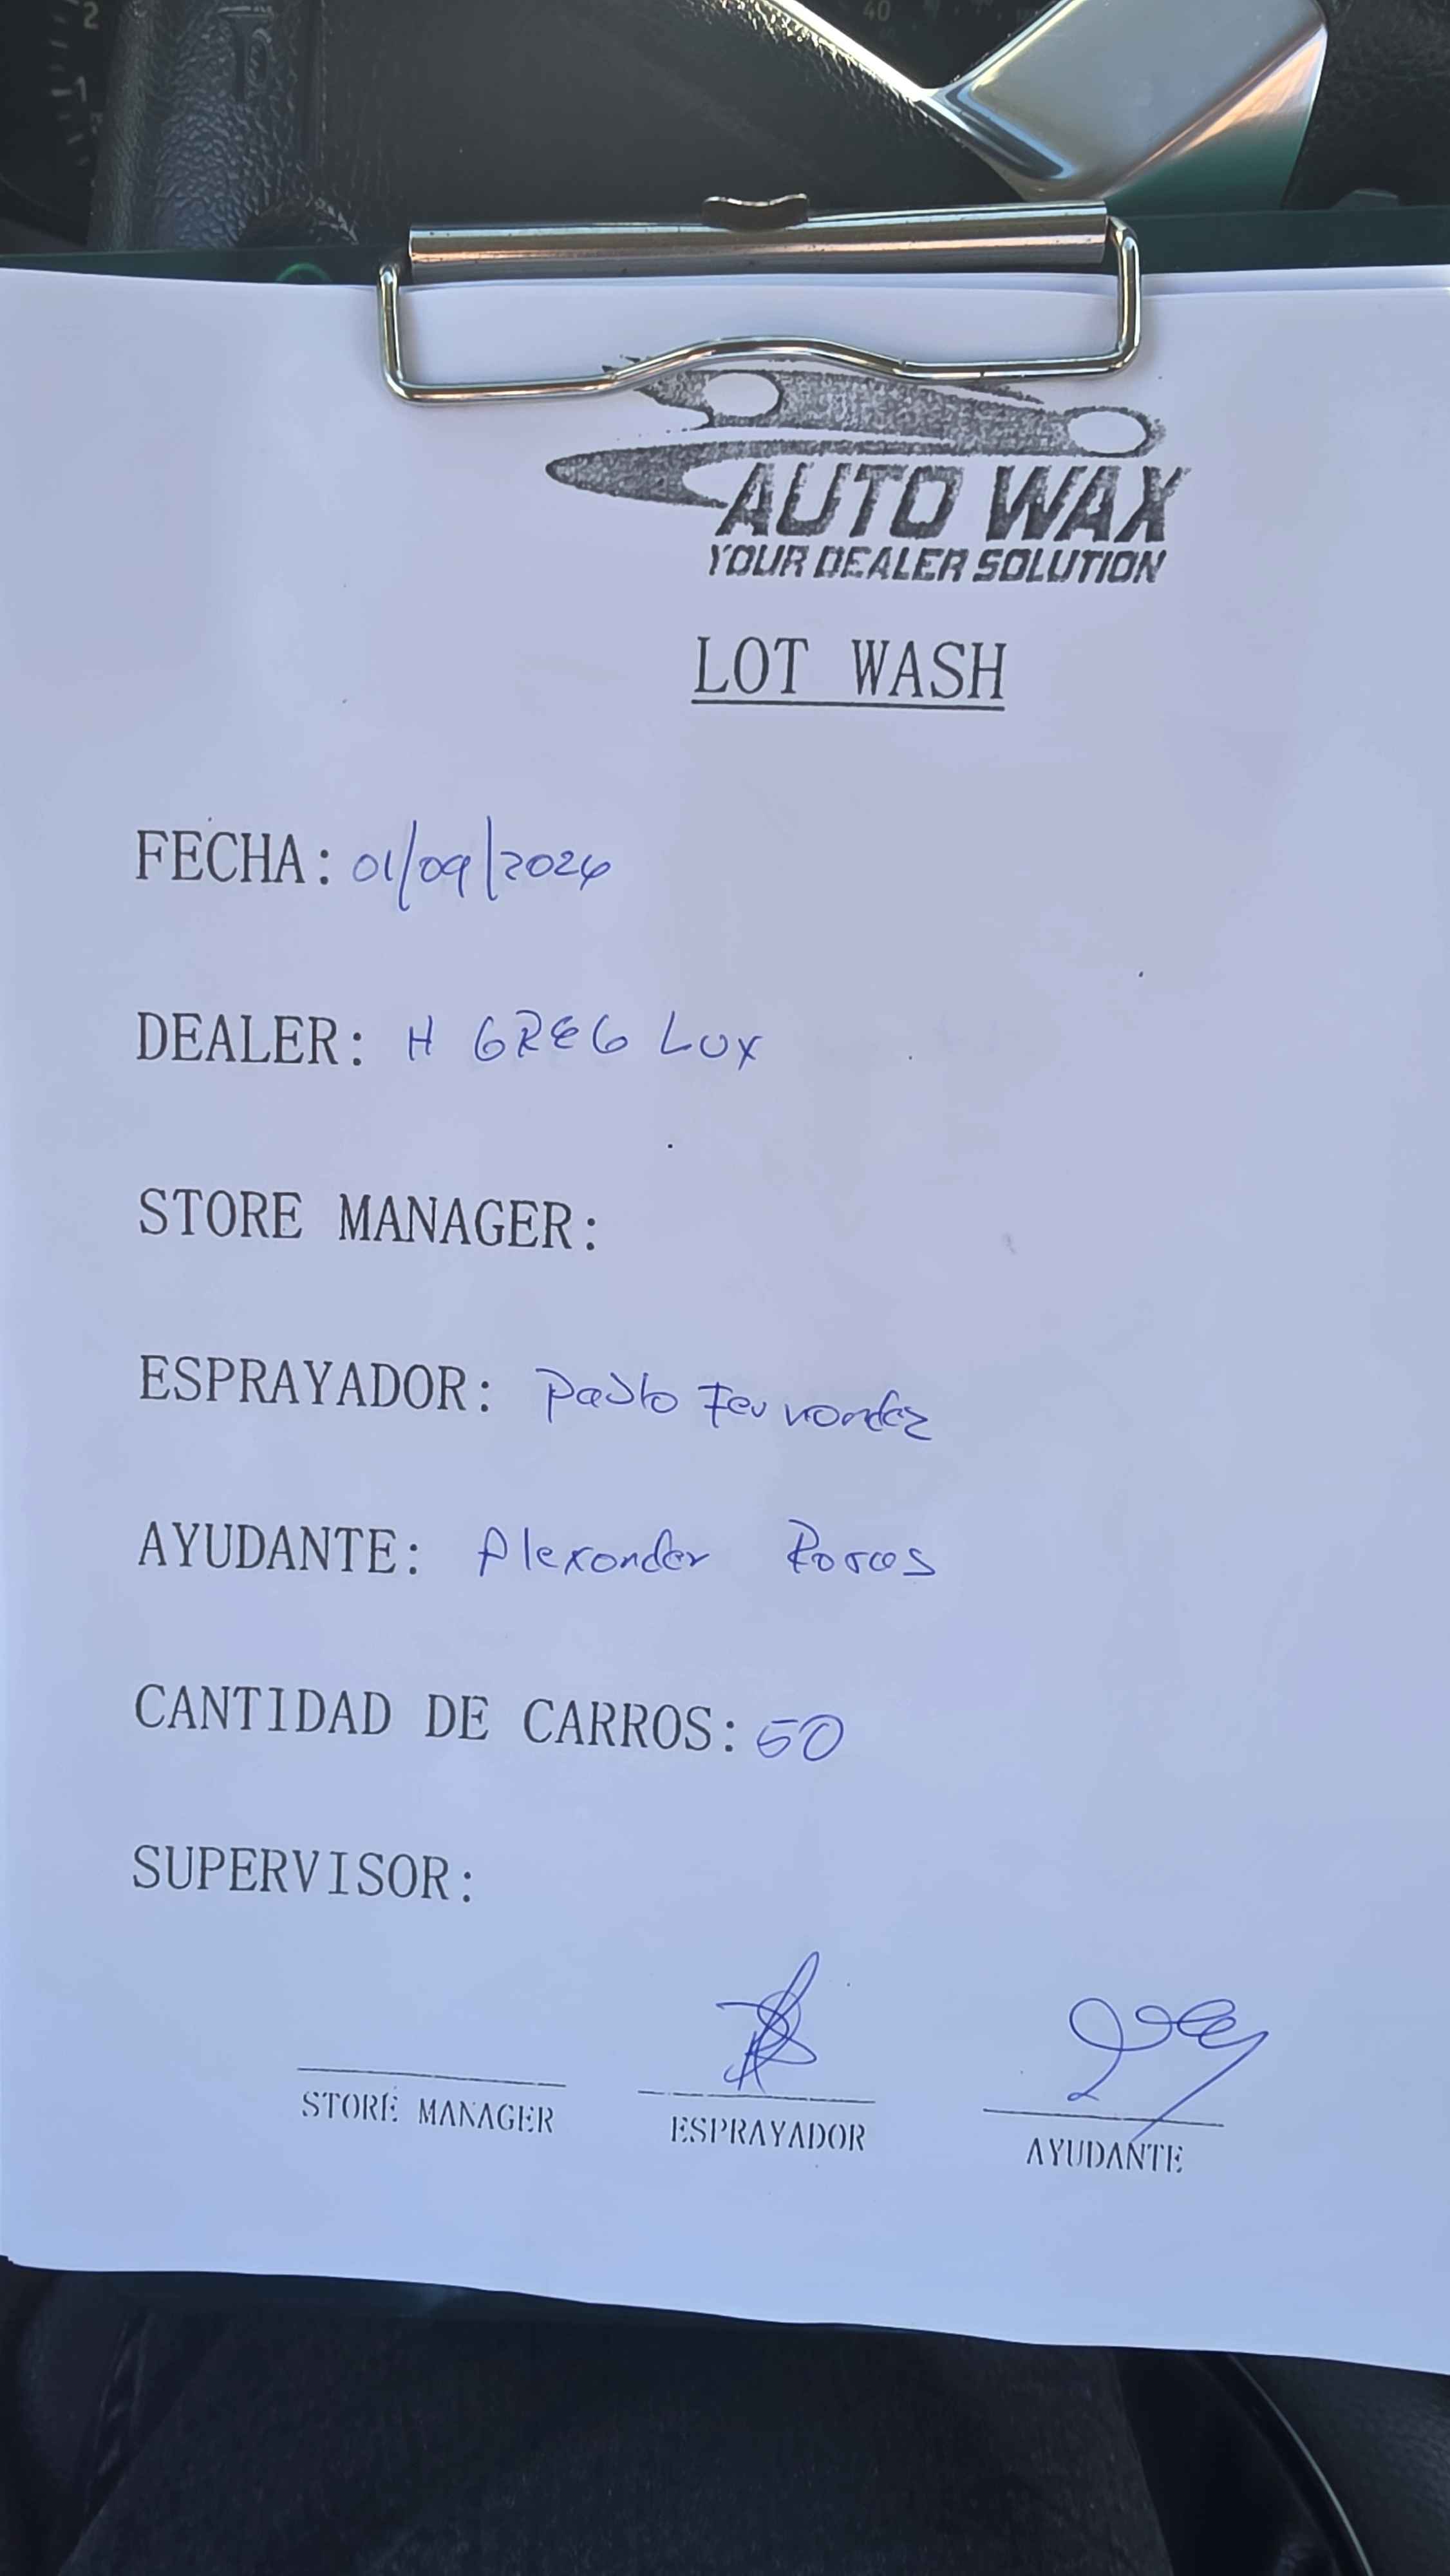 AUTO WAX
YOUR DEALER SOLUTION
LOT WASH
FECHA: 01/09/2026
DEALER: H GREG LUX
STORE MANAGER:
ESPRAYADOR: Pablo Fernandez
AYUDANTE: Alexander
CANTIDAD DE CARROS: 50
SUPERVISOR:
STORE MANAGER ESPRAYADOR AYUDANTE